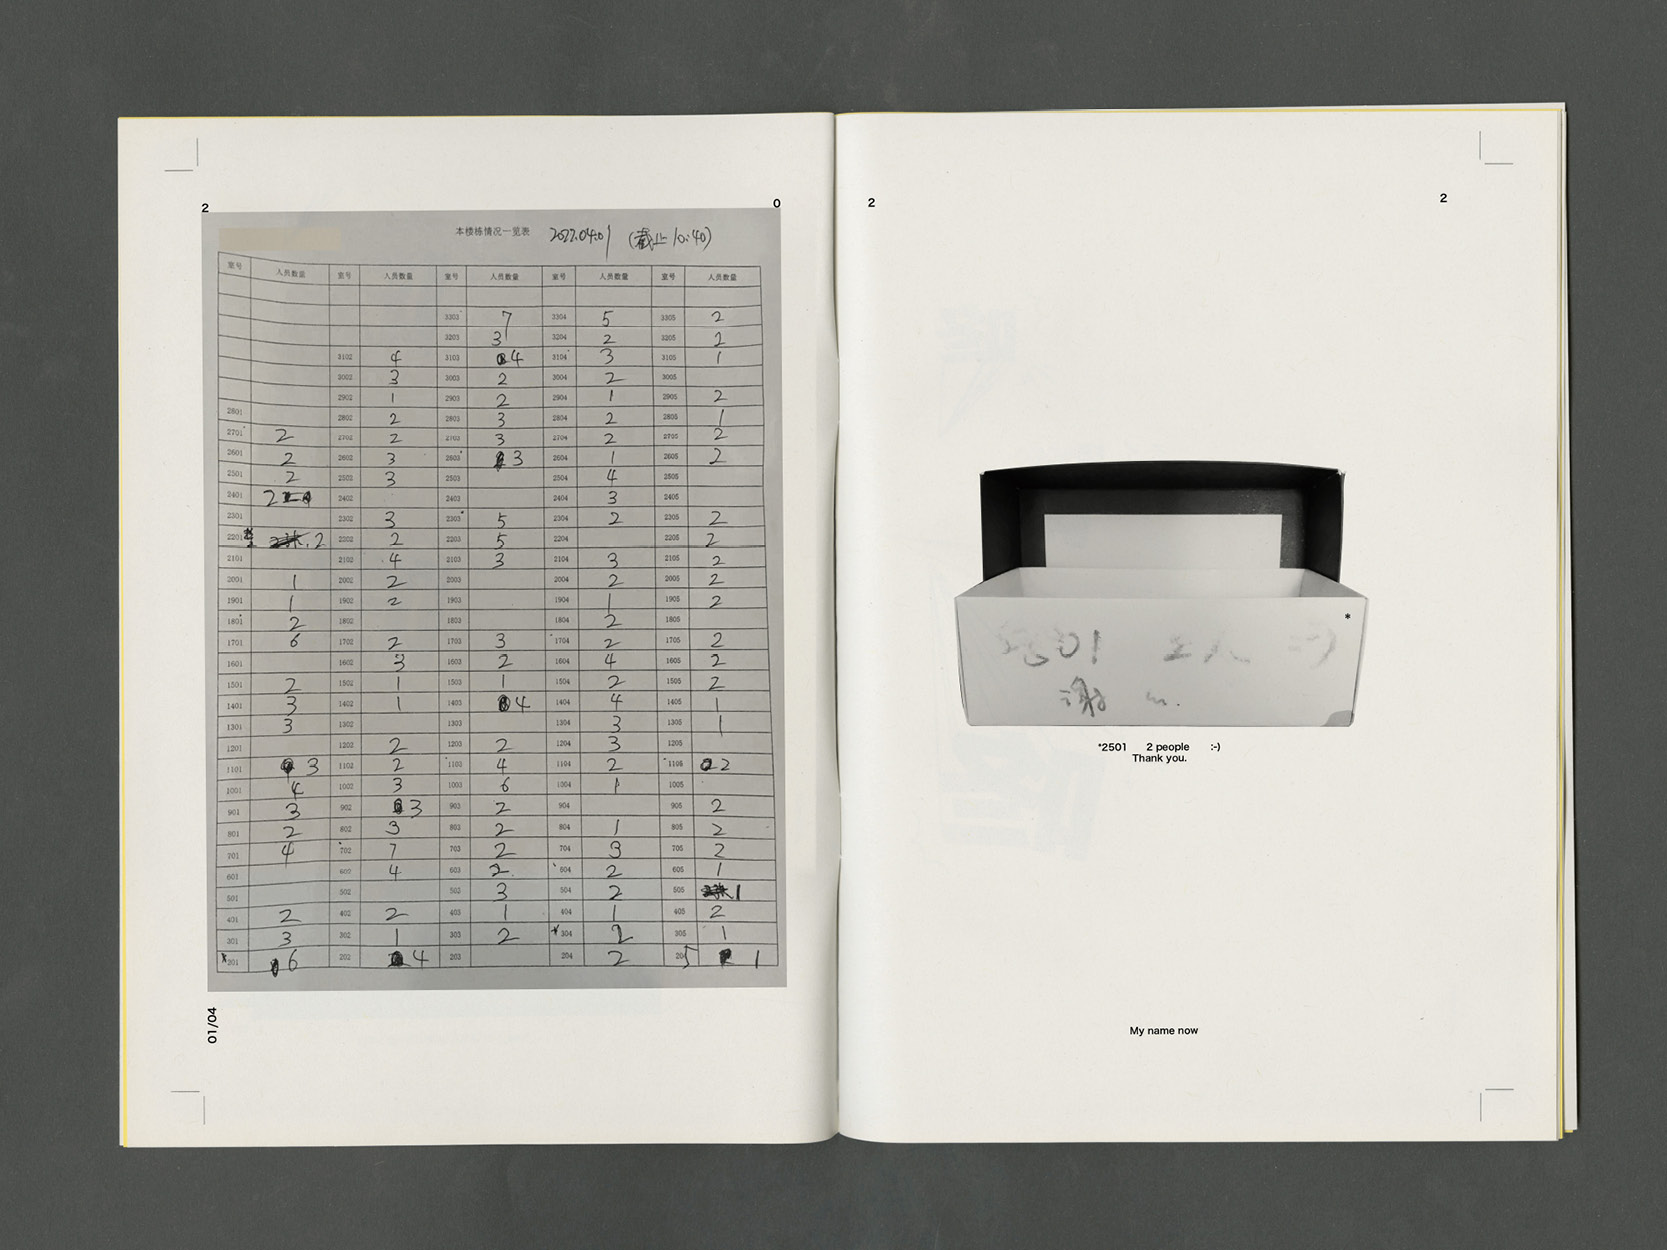 2 0
本楼栋情况一览表 2022.04.01 (截止10:40)
室号 人员数量 室号 人员数量 室号 人员数量 室号 人员数量 室号 人员数量
3303 7 3304 5 3305 2
3203 3 3204 2 3205 2
3102 4 3103 4 3104 3 3105 1
3002 3 3003 2 3004 2 3005
2902 1 2903 2 2904 1 2905 2
2801 2802 2 2803 3 2804 2 2805 1
2701 2 2702 2 2703 3 2704 2 2705 2
2601 2 2602 3 2603 3 2604 1 2605 2
2501 2 2502 3 2503 2504 4 2505
2401 2 2402 2403 2404 3 2405
2301 2302 3 2303 5 2304 2 2305 2
2201 2 2202 2 2203 5 2204 2205 2
2101 2102 4 2103 3 2104 3 2105 2
2001 1 2002 2 2003 2004 2 2005 2
1901 1 1902 2 1903 1904 1 1905 2
1801 2 1802 1803 1804 2 1805
1701 6 1702 2 1703 3 1704 2 1705 2
1601 1602 3 1603 2 1604 4 1605 2
1501 2 1502 1 1503 1 1504 2 1505 2
1401 3 1402 1 1403 4 1404 4 1405 1
1301 3 1302 1303 1304 3 1305 1
1201 1202 2 1203 2 1204 3 1205
1101 3 1102 2 1103 4 1104 2 1105 2
1001 4 1002 3 1003 6 1004 1 1005
901 3 902 3 903 2 904 905 2
801 2 802 3 803 2 804 1 805 2
701 4 702 7 703 2 704 3 705 2
601 602 4 603 2 604 2 605 1
501 502 503 3 504 2 505 1
401 2 402 2 403 1 404 1 405 2
301 3 302 1 303 2 304 2 305 1
201 6 202 4 203 204 2 205 1
01/04
2 2
*
*2501 2 people :-)
Thank you.
My name now